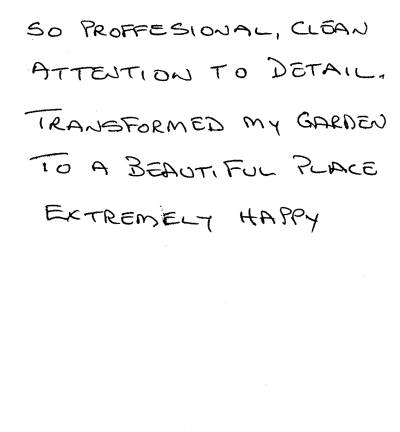 SO PROFFESIONAL, CLEAN
ATTENTION TO DETAIL.
TRANSFORMED MY GARDEN
TO A BEAUTIFUL PLACE
EXTREMELY HAPPY